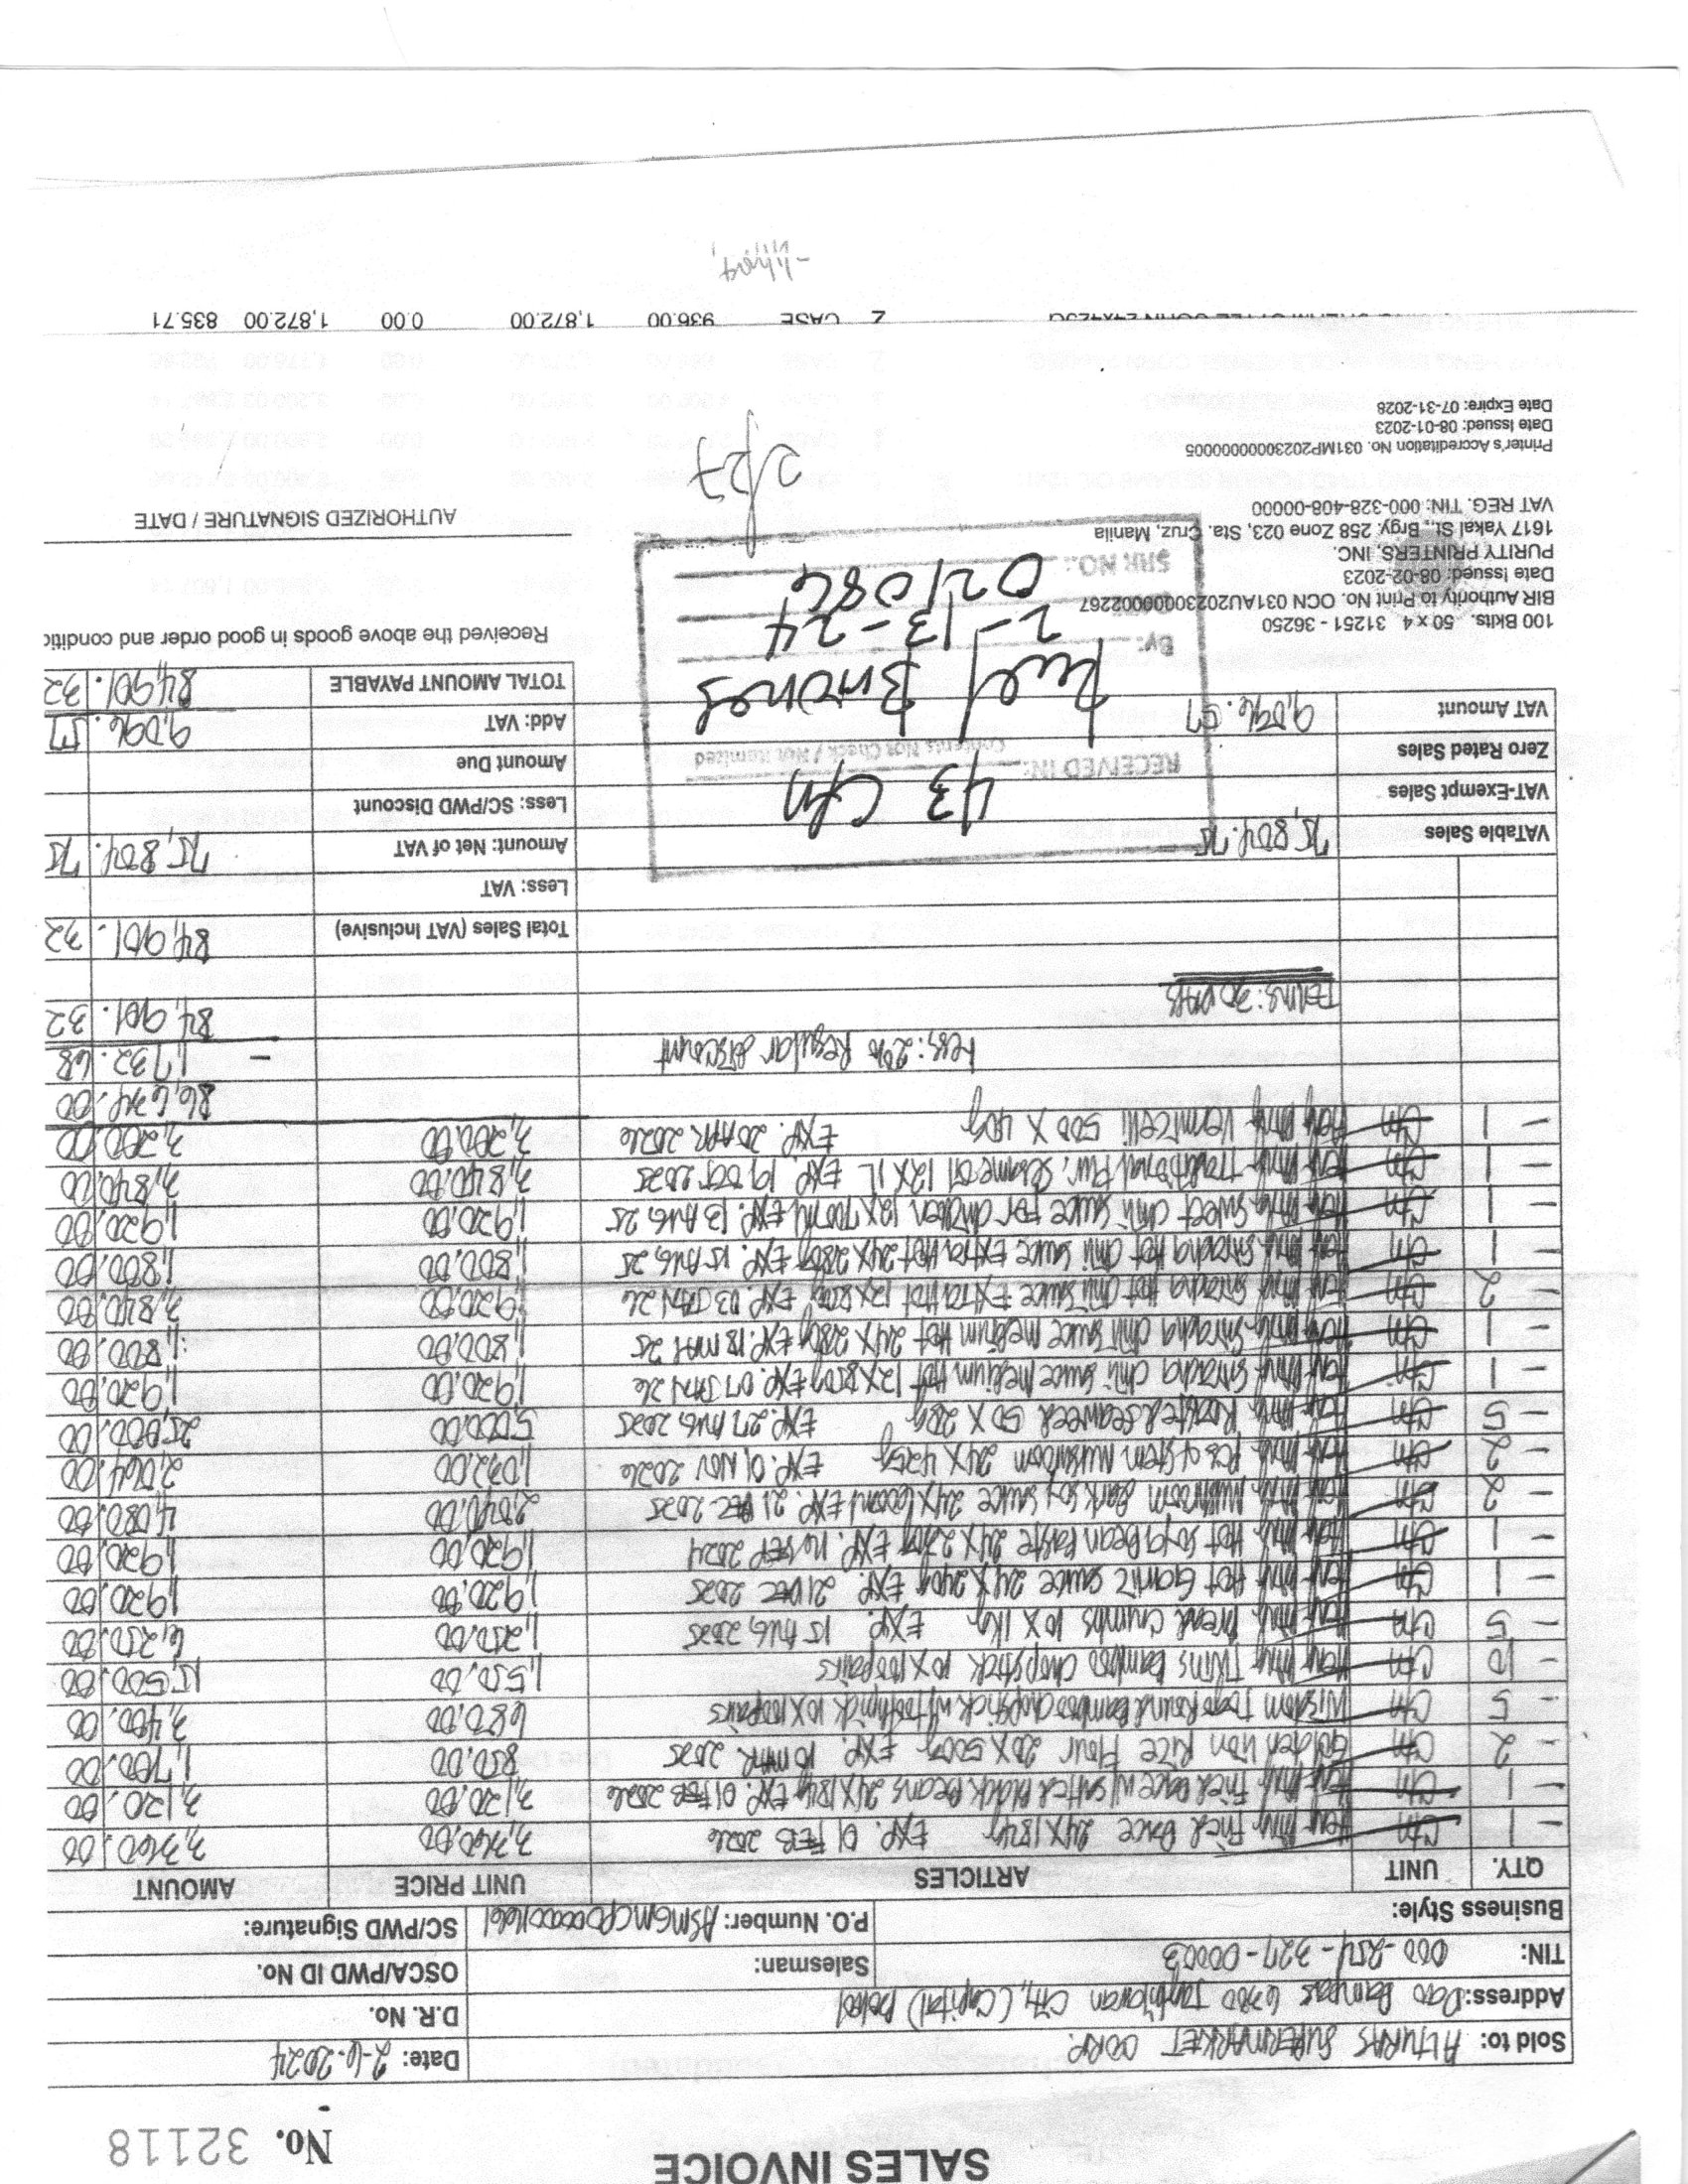 SALES INVOICE
No. 32118
Sold to: ALTURAS SUPERMARKET CORP. Date: 2-6-2024
Address: Dao Dampas 6300 Tagbilaran City, (Capital) Bohol D.R. No.
TIN: 000-254-327-00003 Salesman: OSCA/PWD ID No.
Business Style: P.O. Number: SC/PWD Signature:
QTY. UNIT ARTICLES UNIT PRICE AMOUNT
- 1 Ctn Fried Dace 24X184g EXP. 01 FEB 2026 3,360.00 3,360.00
- 1 Ctn Fried Dace w/ Salted Black Beans 24X184g EXP. 01 FEB 2026 3,120.00 3,120.00
- 2 Ctn Golden Lion Rice Flour 20X500g EXP. 10 MAR 2025 850.00 1,700.00
- 5 Ctn Wisdom Round Bamboo Chopstick w/ Toothpick 10X100pairs 680.00 3,400.00
- 10 Ctn Twins Bamboo Chopstick 10X100pairs 1,550.00 15,500.00
- 5 Ctn Bread Crumbs 10 X 1kg EXP. 15 AUG 2025 1,250.00 6,250.00
- 1 Ctn Hot Garlic Sauce 24X240g EXP. 21 DEC 2025 1,920.00 1,920.00
- 1 Ctn Hot Soya Bean Paste 24X230g EXP. 16 SEP 2024 1,920.00 1,920.00
- 2 Ctn Mushroom Dark Soy Sauce 24X600ml EXP. 21 DEC 2025 2,040.00 4,080.00
- 2 Ctn Pcs & Stem Mushroom 24X425g EXP. 01 NOV 2026 1,032.00 2,064.00
- 5 Ctn Roasted Seaweed 50 X 28g EXP. 27 AUG 2025 5,000.00 25,000.00
- 1 Ctn Sriracha Chili Sauce Medium Hot 12X800g EXP. 07 JAN 26 1,920.00 1,920.00
- 1 Ctn Sriracha Chili Sauce Medium Hot 24X280g EXP. 18 MAY 25 1,800.00 1,800.00
- 2 Ctn Sriracha Hot Chili Sauce Extra Hot 12X800g EXP. 03 JAN 26 1,920.00 3,840.00
- 1 Ctn Sriracha Hot Chili Sauce Extra Hot 24X280g EXP. 15 AUG 25 1,800.00 1,800.00
- 1 Ctn Sweet Chili Sauce For Chicken 12X700ml EXP. 13 AUG 25 1,920.00 1,920.00
- 1 Ctn Traditional Pur. Sesame Oil 12X1L EXP. 19 SEP 2025 3,840.00 3,840.00
- 1 Ctn Vermicelli 500 X 40g EXP. 20 APR 2026 3,200.00 3,200.00
86,634.00
Less: 2% Regular Discount - 1,732.68
84,901.32
TERMS: 30 DAYS
Total Sales (VAT Inclusive) 84,901.32
Less: VAT
VATable Sales 75,804.75 Amount: Net of VAT 75,804.75
VAT-Exempt Sales Less: SC/PWD Discount
Zero Rated Sales Amount Due
VAT Amount 9,096.57 Add: VAT 9,096.57
TOTAL AMOUNT PAYABLE 84,901.32
43 Ctn
RECEIVED IN:
Contents Not Check / Not Itemized
Briones
By:
2-13-24
021086
SRR NO.:
2/27
100 Bklts. 50 x 4 31251 - 36250
BIR Authority to Print No. OCN 031AU20230000002267
Date Issued: 08-02-2023
PURITY PRINTERS, INC.
1617 Yakal St., Brgy. 258 Zone 023, Sta. Cruz, Manila
VAT REG. TIN: 000-328-408-00000
Printer's Accreditation No. 031MP20230000000005
Date Issued: 08-01-2023
Date Expire: 07-31-2028
Received the above goods in good order and conditic
AUTHORIZED SIGNATURE / DATE
2 CASE 936.00 1,872.00 0.00 1,872.00 835.71